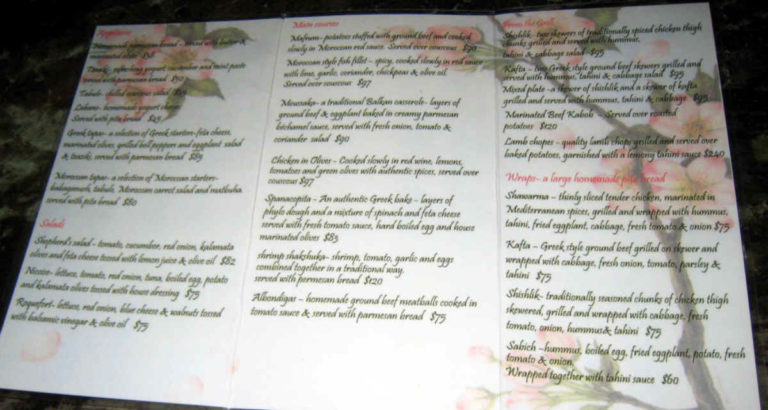 Appetizers
Homemade parmesan bread - served with butter &
marinated olives $38
Tzaziki - refreshing yogurt cucumber and mint paste
served with parmesan bread $50
Tabule - chilled couscous salad $55
Labane - homemade yogurt cheese
Served with pita bread $45
Greek tapas - a selection of Greek starters-feta cheese,
marinated olives, grilled bell peppers and eggplant salad
& tzaziki, served with parmesan bread $85
Moroccan tapas - a selection of Moroccan starters-
tabule, Moroccan carrot salad and matbuha
served with pita bread $80
Salads
Shepherd's salad - tomato, cucumber, red onion, kalamata
olives and feta cheese tossed with lemon juice & olive oil $82
Nicoise - lettuce, tomato, red onion, tuna, boiled egg, potato
and kalamata olives tossed with house dressing $75
Roquefort - lettuce, red onion, blue cheese & walnuts tossed
with balsamic vinegar & olive oil $75
Main courses
Mafrum - potatoes stuffed with ground beef and cooked
slowly in Moroccan red sauce. Served over couscous $90
Moroccan style fish fillet - spicy, cooked slowly in red sauce
with lime, garlic, coriander, chickpeas & olive oil.
Served over couscous $97
Mousaka - a traditional Balkan casserole - layers of
ground beef & eggplant baked in creamy parmesan
béchamel sauce, served with fresh onion, tomato &
coriander salad $90
Chicken in Olives - Cooked slowly in red wine, lemons,
tomatoes and green olives with authentic spices, served over
couscous $97
Spanacopita - An authentic Greek bake - layers of
phylo dough and a mixture of spinach and feta cheese
served with fresh tomato sauce, hard boiled egg and house
marinated olives $85
shrimp shakshuka - shrimp, tomato, garlic and eggs
combined together in a traditional way.
served with permesan bread $120
Albondigas - homemade ground beef meatballs cooked in
tomato sauce & served with parmesan bread $75
From the Grill
Shishlik - two skewers of traditionally spiced chicken thigh
chunks grilled and served with hummus,
tahini & cabbage salad $95
Kafta - two Greek style ground beef skewers grilled and
served with hummus, tahini & cabbage salad $95
Mixed plate - a skewer of shishlik and a skewer of kafta
grilled and served with hummus, tahini & cabbage $95
Marinated Beef Kabob - Served over roasted
potatoes $120
Lamb chopes - quality lamb chops grilled and served over
baked potatoes, garnished with a lemony tahini sauce $240
Wraps - a large homemade pita bread
Shawarma - thinly sliced tender chicken, marinated in
Mediterranean spices, grilled and wrapped with hummus,
tahini, fried eggplant, cabbage, fresh tomato & onion $75
Kafta - Greek style ground beef grilled on skewer and
wrapped with cabbage, fresh onion, tomato, parsley &
tahini $75
Shishlik - traditionally seasoned chunks of chicken thigh
skewered, grilled and wrapped with cabbage, fresh
tomato, onion, hummus & tahini $75
Sabich - hummus, boiled egg, fried eggplant, potato, fresh
tomato & onion.
Wrapped together with tahini sauce $60